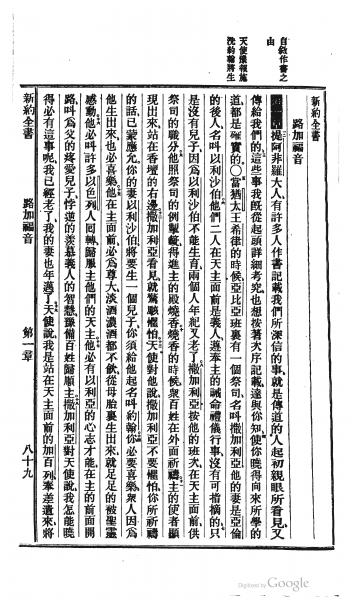 新約全書
路加福音
自敘作書之
由
提阿非羅大人有許多人作書記載我們所深信的事就是傳道的人起初親眼所看見又
傳給我們的這些事我旣從起頭詳細考究也想按著次序記載達與你知使你曉得向來所學的
道都是確實的〇當猶太王希律的時候亞比亞班裏有一個祭司名叫撒加利亞他的妻是亞倫
的後人名叫以利沙伯他們二人在天主面前是義人遵奉主的誡命禮儀行事沒有可指摘的只
是沒有兒子因爲以利沙伯不能生育兩個人年紀又老了撒加利亞按他的班次在天主面前供
天使豫報施
洗約翰將生
祭司的職分他照祭司的例掣籤得進主的殿燒香燒香的時候衆百姓在外面祈禱主的使者顯
現出來站在香壇的右邊撒加利亞看見就驚駭懼怕天使對他說撒加利亞不要懼怕你所祈禱
的話已蒙應允你的妻以利沙伯將要生一個兒子你須給他起名叫約翰你必要喜樂衆人因爲
他生出來也必喜樂他在主面前必爲尊大淡酒濃酒都不飲從母胎裏生出來就足足的被聖靈
感動他必叫許多以色列人回轉歸服主他們的天主他必有以利亞的心志才能在主的前面開
路叫爲父的疼愛兒子悖逆的羨慕義人的智慧豫備百姓歸順主撒加利亞對天使說我怎能曉
得必有這事呢我已經老了我的妻也年邁了天使說我是站在天主面前的加百列奉差遣來將
新約全書
路加福音
第一章
八十九
Digitized by Google